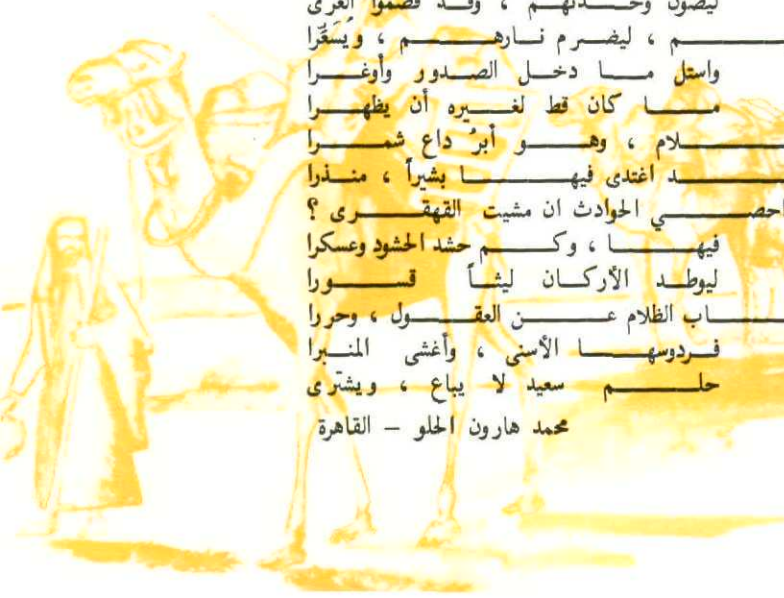 ليصون وحدتهم ، وقد فصموا العرى
م ، ليضرم نارهم ، ويُسَعِّرا
واستل ما دخل الصدور وأوغرا
ما كان قط لغيره أن يظهرا
لام ، وهو أبرُ داع شمرا
د اغتدى فيها بشيراً ، منذرا
احصي الحوادث ان مشيت القهقرى ؟
فيها ، وكم حشد الحشود وعسكرا
ليوطد الأركان ليثاً قسورا
اب الظلام عن العقول ، وحررا
فردوسها الأسنى ، وأغشى المنبرا
حلم سعيد لا يباع ، ويشترى
محمد هارون الحلو – القاهرة